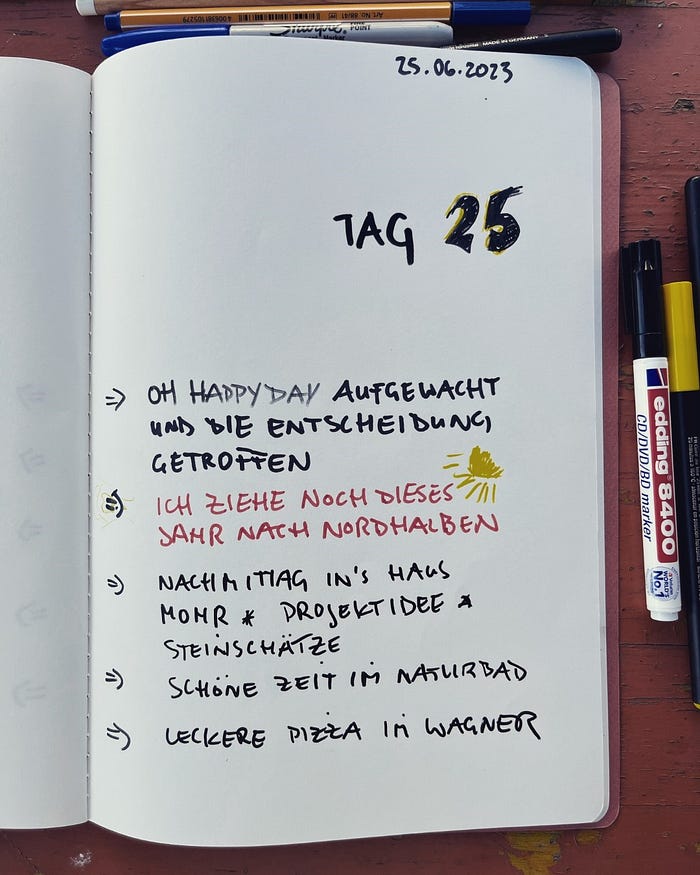 Art.-No. 88/41
4 006381 105279
Sharpie
FINE POINT
Marker
MADE IN GERMANY
25.06.2023
TAG 25
⇒ OH HAPPY DAY AUFGEWACHT
UND DIE ENTSCHEIDUNG
GETROFFEN
ICH ZIEHE NOCH DIESES
JAHR NACH NORDHALBEN
⇒ NACHMITTAG IN'S HAUS
MOHR * PROJEKTIDEE *
STEINSCHÄTZE
⇒ SCHÖNE ZEIT IM NATURBAD
⇒ LECKERE PIZZA IM WAGNER
edding 8400
CD/DVD/BD marker
WORLD'S
No.1